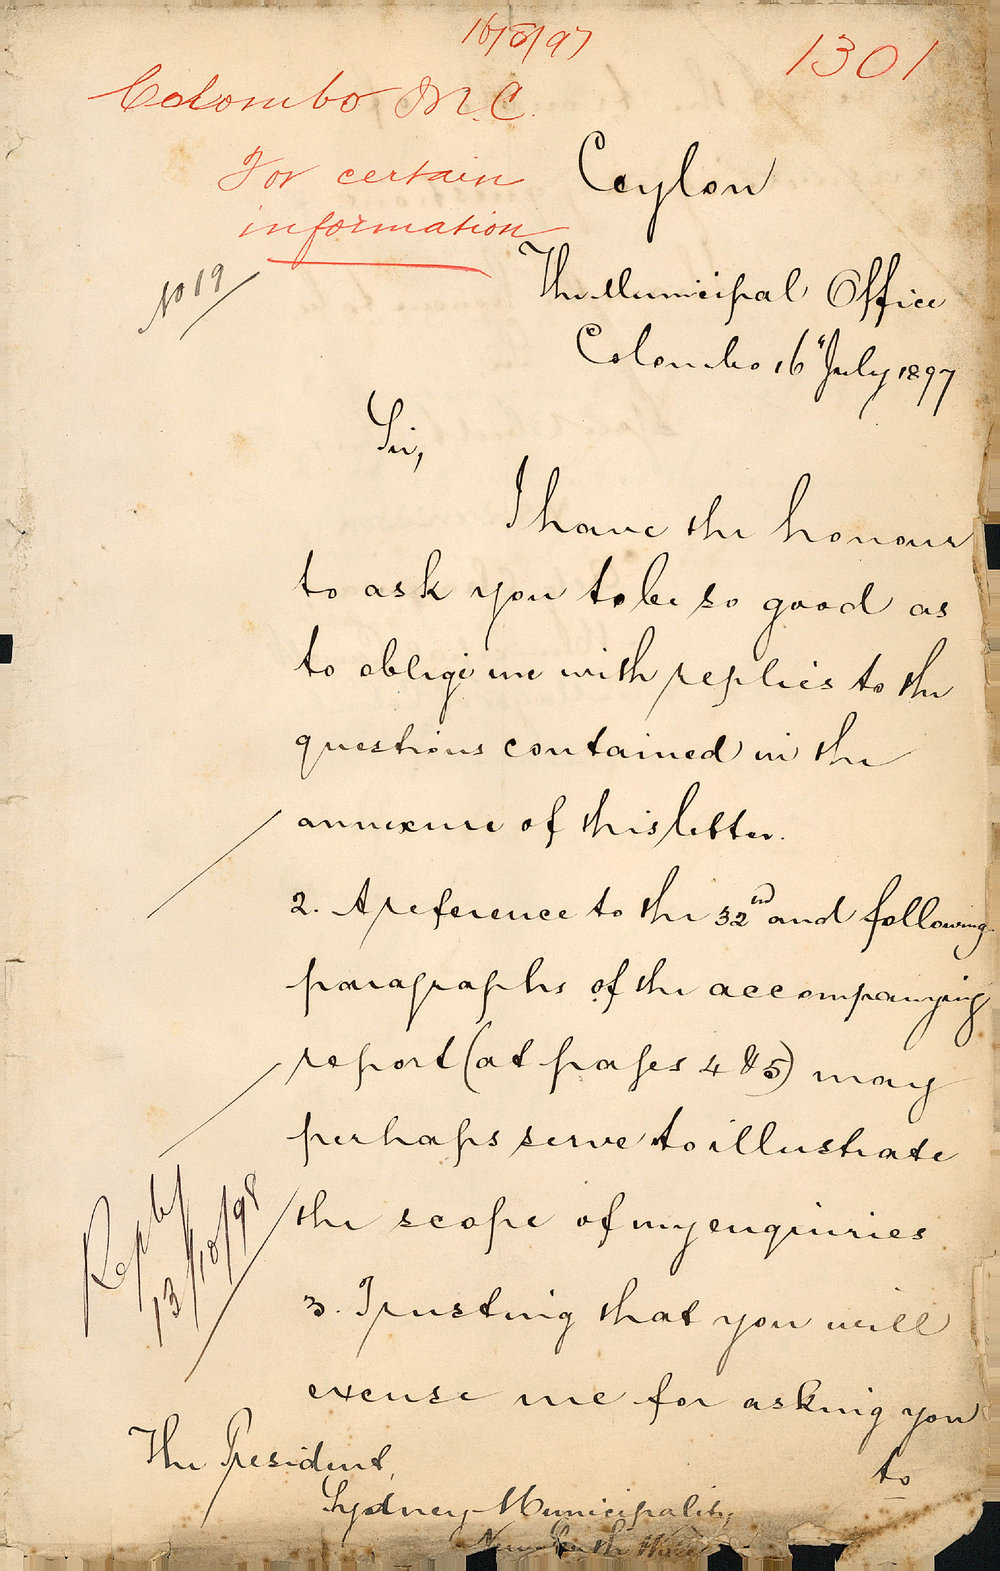 16/8/97
1301
Colombo M.C.
For certain
information
No 19
Ceylon
The Municipal Office
Colombo 16th July 1897
Sir,
I have the honour
to ask you to be so good as
to oblige me with replies to the
questions contained in the
annexure of this letter.
2. A reference to the 32nd and following
paragraphs of the accompanying
report (at pages 4 & 5) may
perhaps serve to illustrate
the scope of my enquiries
3. Trusting that you will
excuse me for asking you
to
Reply
13/10/98
The President,
Sydney Municipality,
New South Wales